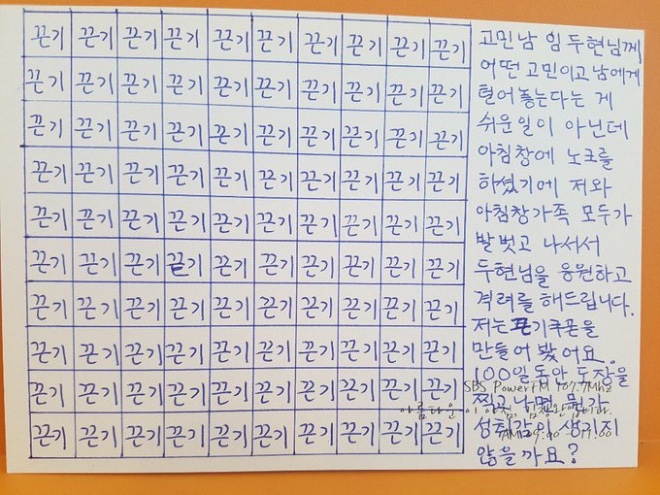 끈기 끈기 끈기 끈기 끈기 끈기 끈기 끈기 끈기 끈기
끈기 끈기 끈기 끈기 끈기 끈기 끈기 끈기 끈기 끈기
끈기 끈기 끈기 끈기 끈기 끈기 끈기 끈기 끈기 끈기
끈기 끈기 끈기 끈기 끈기 끈기 끈기 끈기 끈기 끈기
끈기 끈기 끈기 끈기 끈기 끈기 끈기 끈기 끈기 끈기
끈기 끈기 끈기 끈기 끈기 끈기 끈기 끈기 끈기 끈기
끈기 끈기 끈기 끈기 끈기 끈기 끈기 끈기 끈기 끈기
끈기 끈기 끈기 끈기 끈기 끈기 끈기 끈기 끈기 끈기
끈기 끈기 끈기 끈기 끈기 끈기 끈기 끈기 끈기 끈기
끈기 끈기 끈기 끈기 끈기 끈기 끈기 끈기 끈기 끈기
고민남 임두현님께
어떤 고민이고 남에게
털어 놓는다는 게
쉬운일이 아닌데
아침창에 노크를
하셨기에 저와
아침창가족 모두가
발벗고 나서서
두현님을 응원하고
격려를 해드립니다.
저는 끈기쿠폰을
만들어 봤어요.
100일동안 도장을
찍고나면 뭔가
성취감이 생기지
않을까요?
SBS Power FM 107.7Mhz
아름다운 이 아침 김창완입니다.
AM 09:00 - 11:00